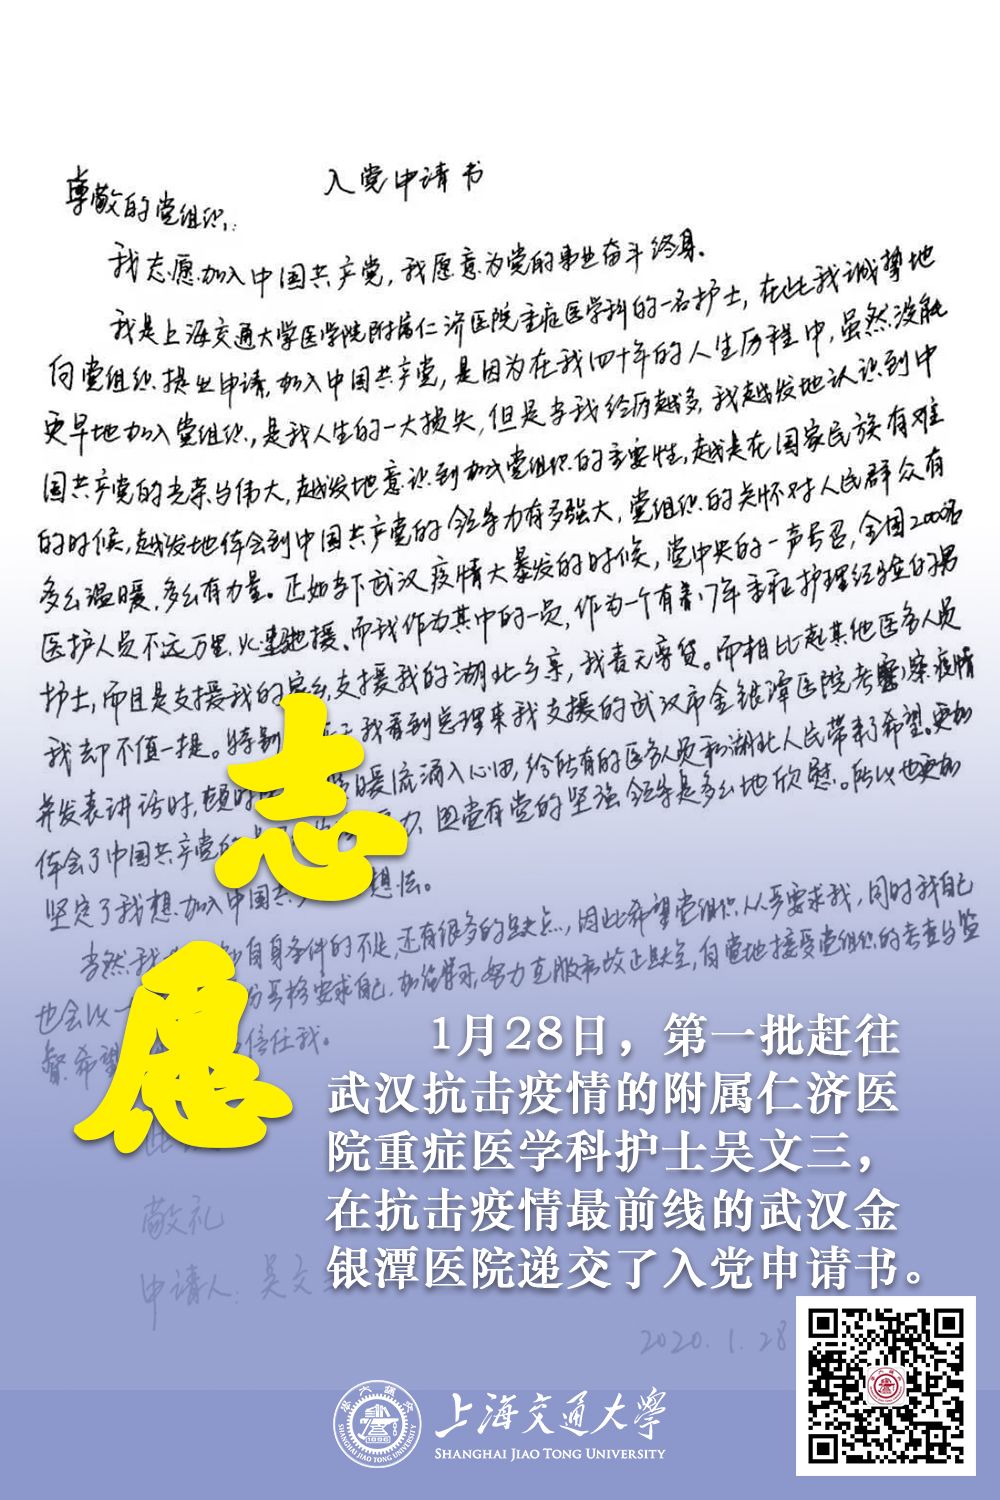 入党申请书
尊敬的党组织：
我志愿加入中国共产党，我愿意为党的事业奋斗终身。
我是上海交通大学医学院附属仁济医院重症医学科的一名护士，在此我诚挚地
向党组织提出申请，加入中国共产党，是因为在我四十年的人生历程中，虽然没能
更早地加入党组织，是我人生的一大损失，但是李我经历越多，我越发地认识到中
国共产党的光荣与伟大，越发地意识到加入党组织的主要性，越是在国家民族有难
的时候，越发地体会到中国共产党的领导力有多强大，党组织的关怀对人民群众有
多么温暖，多么有力量。正如当下武汉疫情大暴发的时候，党中央的一声号召，全国2000名
医护人员不远万里，火速驰援。而我作为其中的一员，作为一个有着17年重症护理经验的男
护士，而且是支援我的家乡，支援我的湖北乡亲，我责无旁贷。而相比起其他医务人员
我却不值一提。特别 我看到总理来我支援的武汉市金银潭医院考察疫情
并发表讲话时，顿时 暖流涌入心田，给所有的医务人员和湖北人民带来了希望。更加
体会了中国共产党的 力，因党有党的坚强领导是多么地欣慰。所以也更加
坚定了我想加入中国共 想法。
当然我 自身条件的不足，还有很多的缺点，因此希望党组织从严要求我，同时我自己
也会以一 严格要求自己，加倍 努力克服和改正缺点，自觉地接受党组织的考查与监
督。希望 信任我。
敬礼
申请人：吴文
2020.1.28
志愿
1月28日，第一批赶往
武汉抗击疫情的附属仁济医
院重症医学科护士吴文三，
在抗击疫情最前线的武汉金
银潭医院递交了入党申请书。
上海交通大学
SHANGHAI JIAO TONG UNIVERSITY